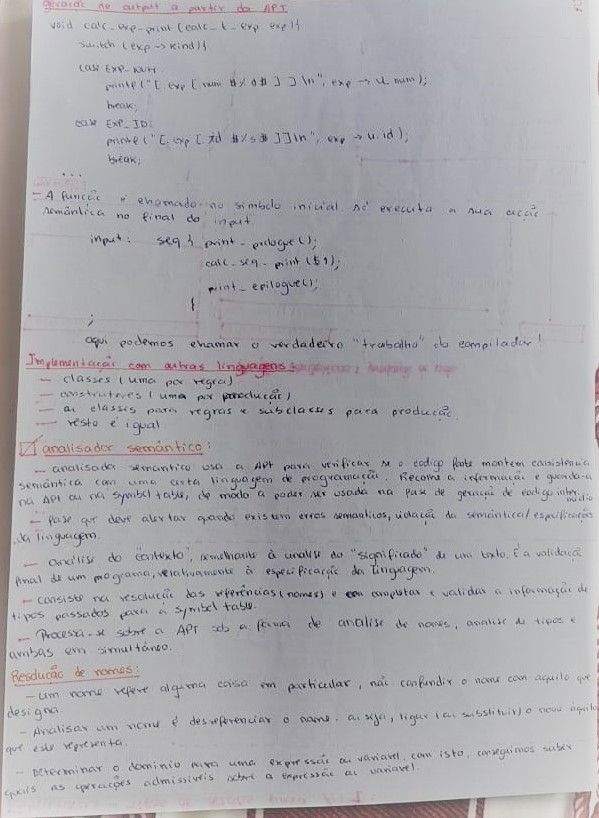 geração do output a partir da APT.
void calc_exp_print (calc_t_exp exp){
switch (exp → kind){
case EXP_NUM:
printf("[.exp [ num $%d$ ] ]\n", exp → u.num);
break;
case EXP_ID:
printf("[.exp [ id $%s$ ]]\n", exp → u.id);
break;
...
- A função é chamado no simbolo inicial. Só executa a sua acção
semântica no final do input.
input: seq { print_prologue();
calc_seq_print($1);
print_epilogue();
}
;
aqui podemos chamar o verdadeiro "trabalho" do compilador!
Implementação com outras linguagens:
- classes (uma por regra)
- construtores (uma por produção)
- ou classes para regras e subclasses para produção.
- resto é igual
analisador semântico:
- analisador semantico usa a APT para verificar se o codigo fonte mantem consistencia
semântica com uma certa linguagem de programação. Recolhe a informação e guarda-a
na APT ou na symbol table, de modo a poder ser usada na fase de geração de codigo intermédio
- fase que deve alertar quando existem erros semanticos, violação da semântica/especificação
da linguagem.
- análise do "contexto", semelhante à analise do "significado" de um texto. É a validação
final de um programa, relativamente à especificação da linguagem.
- consiste na resolução das referências (nomes) e em completar e validar a informação de
tipos passados para a symbol table.
- Processa-se sobre a APT sob a forma de analise de nomes, analise de tipos e
ambas em simultâneo.
Resolução de nomes:
- um nome refere alguma coisa em particular, não confundir o nome com aquilo que
designa.
- Analisar um nome é desreferenciar o nome. ou seja, ligar (ou substituir) o nome àquilo
que este representa.
- Determinar o dominio para uma expressão ou variavel, com isto, conseguimos saber
quais as operações admissiveis sobre a expressão ou variavel.